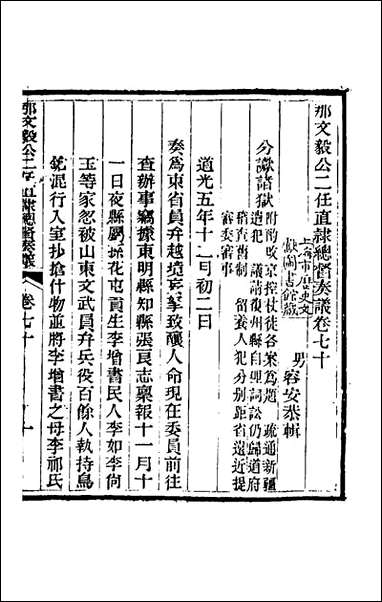 那文毅公二任直隸總督奏議卷七十
上海市歷史文
獻圖書館藏
男容安恭輯
分讞諸獄
附酌改京控枉徒各案為題 疏通新疆
遣犯 議請復州縣自理詞訟仍歸道府
稽查舊制 留養人犯分別距省遠近提
審委審事
道光五年十二月初二日
奏為東省員弁越境妄拏致釀人命現在委員前往
查辦事竊據東明縣知縣張貢志稟報十一月十
一日夜縣劉搓花屯貢生李增書民人李如李向
玉等家忽被山東文武員弁兵役百餘人執持鳥
鎗混行入室抄搶什物並將李增書之母李祁氏
那文毅公二任直隸總督奏議
卷七十